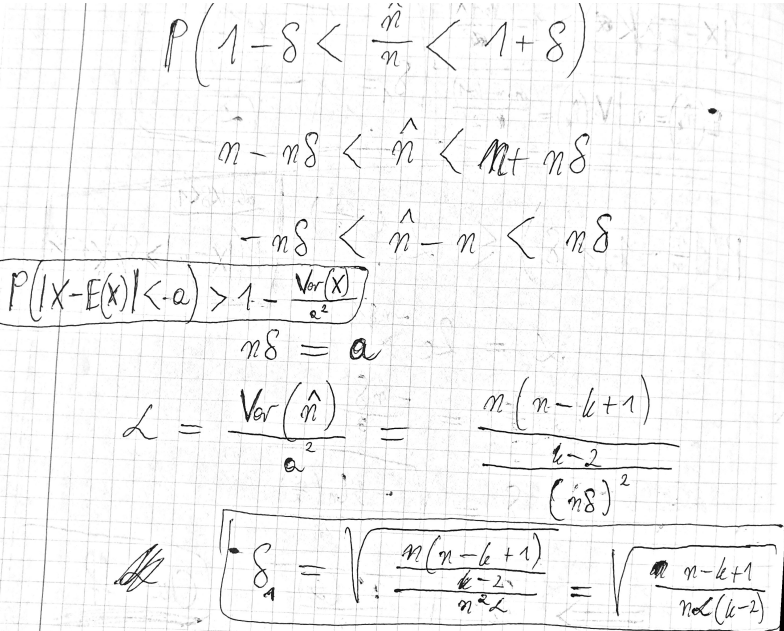 P(1-δ < n̂/n < 1+δ)
n - nδ < n̂ < n + nδ
-nδ < n̂ - n < nδ
P(|X-E(X)|<a) > 1 - Var(X)/a²
nδ = a
α = Var(n̂)/a² = (n(n-k+1)/(k-2))/(nδ)²
δ₁ = √((n(n-k+1)/(k-2))/(n²α)) = √((n-k+1)/(nα(k-2)))